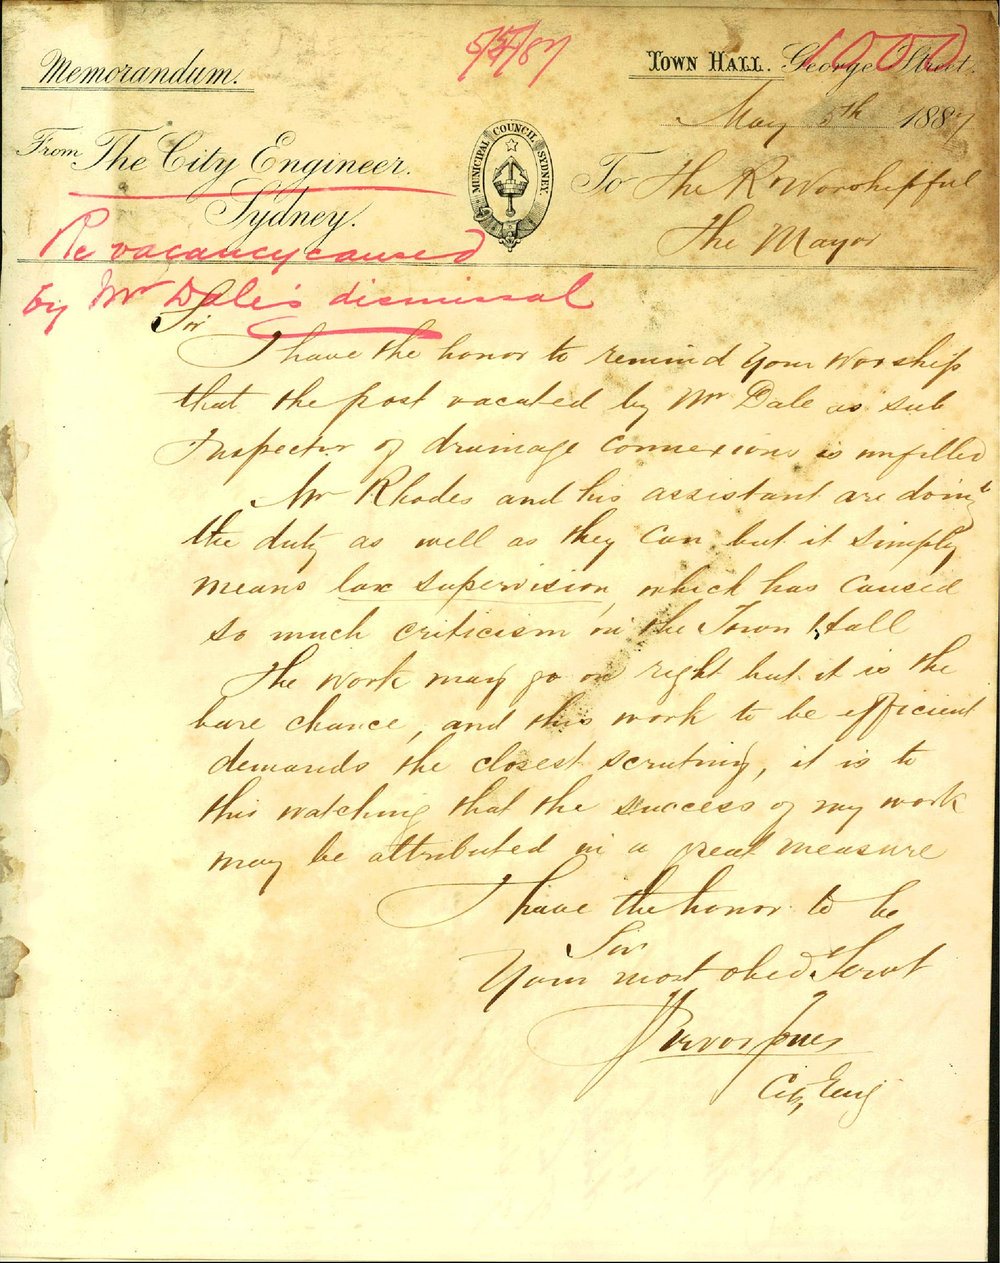 5/5/87
1000
Memorandum.
TOWN HALL. George Street.
May 5th 1887
From The City Engineer.
Sydney.
MUNICIPAL COUNCIL SYDNEY
To The Rt Worshipful
The Mayor
Re vacancy caused
by Mr Dale's dismissal
Sir
I have the honor to remind Your Worship
that the post vacated by Mr Dale as sub
Inspector of drainage connexions is unfilled
Mr Rhodes and his assistant are doing
the duty as well as they can but it simply
means lax supervision, which has caused
so much criticism on the Town Hall
The work may go on right but it is the
bare chance, and this work to be efficient
demands the closest scrutiny, it is to
this watching that the success of my work
may be attributed in a great measure
I have the honor to be
Sir
Your most obed Servt
Trevor Jones
City Eng